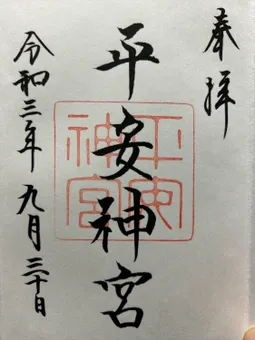 奉拝
平安神宮
平安神宮
令和三年九月三十日